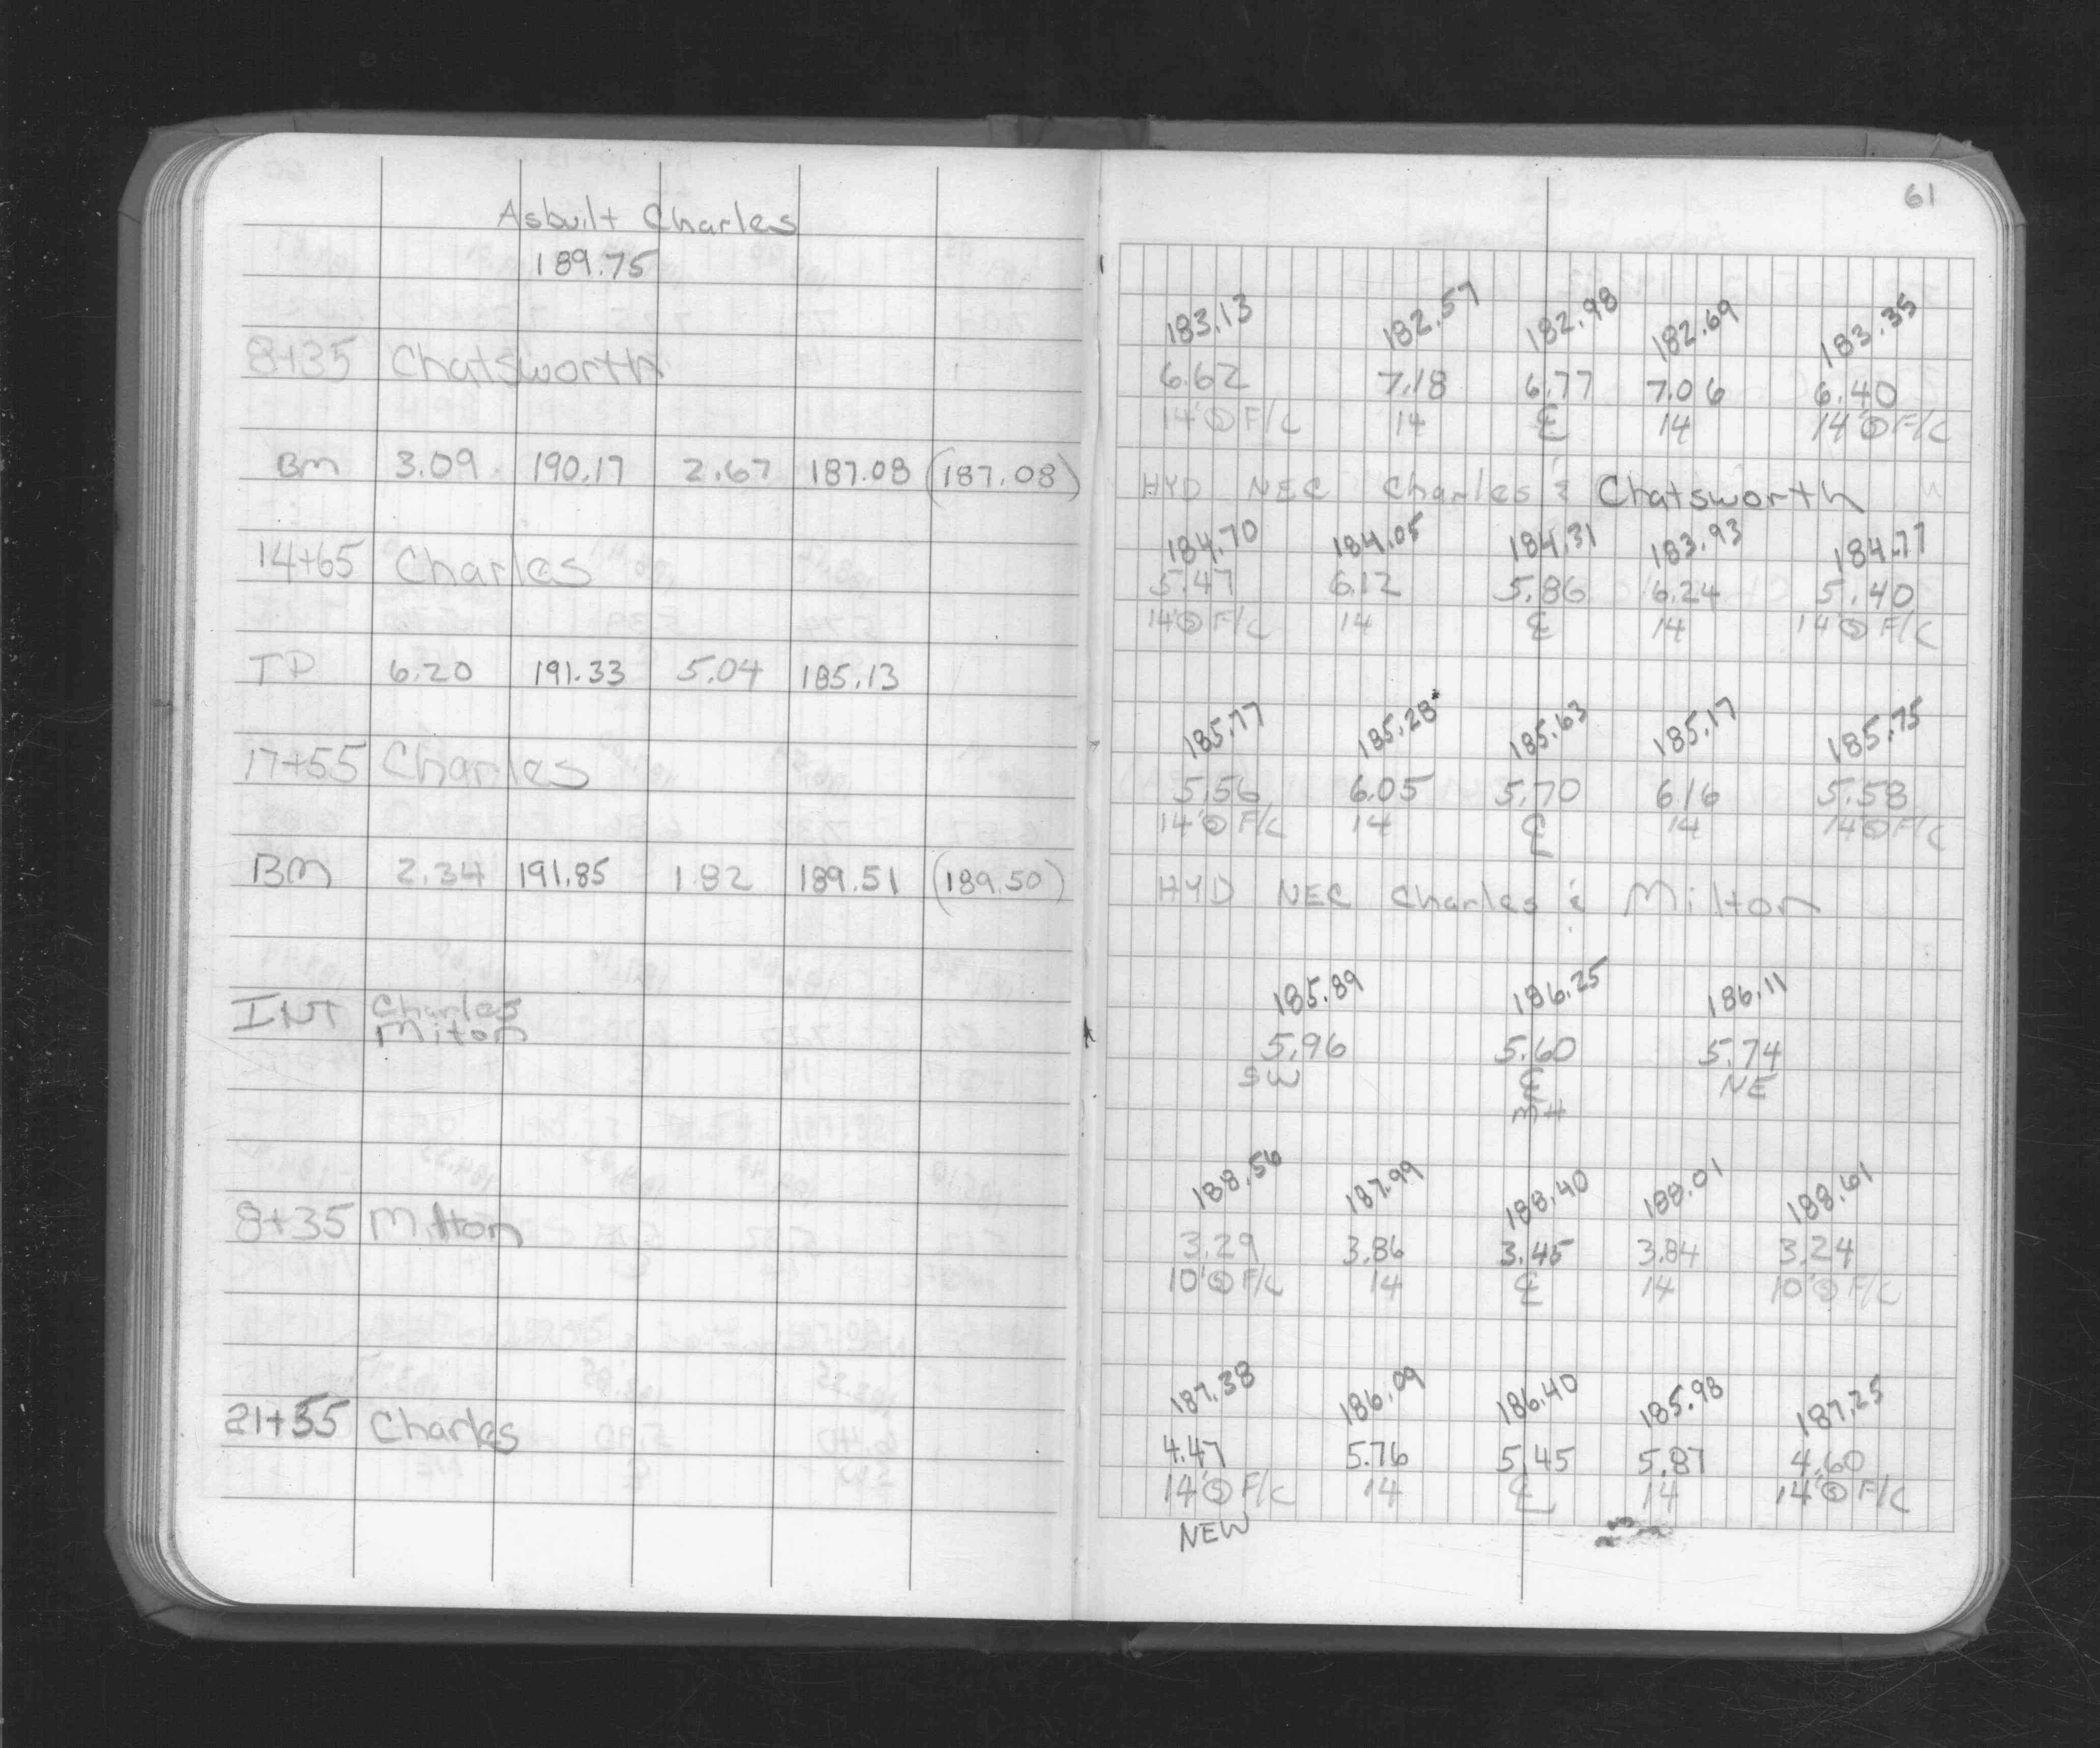 Asbuilt Charles
189.75
8+35 Chatsworth
BM 3.09 190.17 2.67 187.08 (187.08)
14+65 Charles
TP 6.20 191.33 5.04 185.13
17+55 Charles
BM 2.34 191.85 1.82 189.51 (189.50)
INT Charles
Miton
8+35 Milton
21+55 Charles
61
183.13 182.57 182.98 182.69 183.35
6.62 7.18 6.77 7.06 6.40
14'@F/C 14 ℄ 14 14'@F/C
HYD NEC Charles & Chatsworth
184.70 184.05 184.31 183.93 184.77
5.47 6.12 5.86 6.24 5.40
14'@F/C 14 ℄ 14 14'@F/C
185.77 185.28 185.63 185.17 185.75
5.56 6.05 5.70 6.16 5.58
14'@F/C 14 ℄ 14 14'@F/C
HYD NEC Charles & Milton
185.89 186.25 186.11
5.96 5.60 5.74
SW ℄ NE
MH
188.56 187.99 188.40 188.01 188.61
3.29 3.86 3.45 3.84 3.24
10'@F/C 14 ℄ 14 10'@F/C
187.38 186.09 186.40 185.98 187.25
4.47 5.76 5.45 5.87 4.60
14'@F/C 14 ℄ 14 14'@F/C
NEW